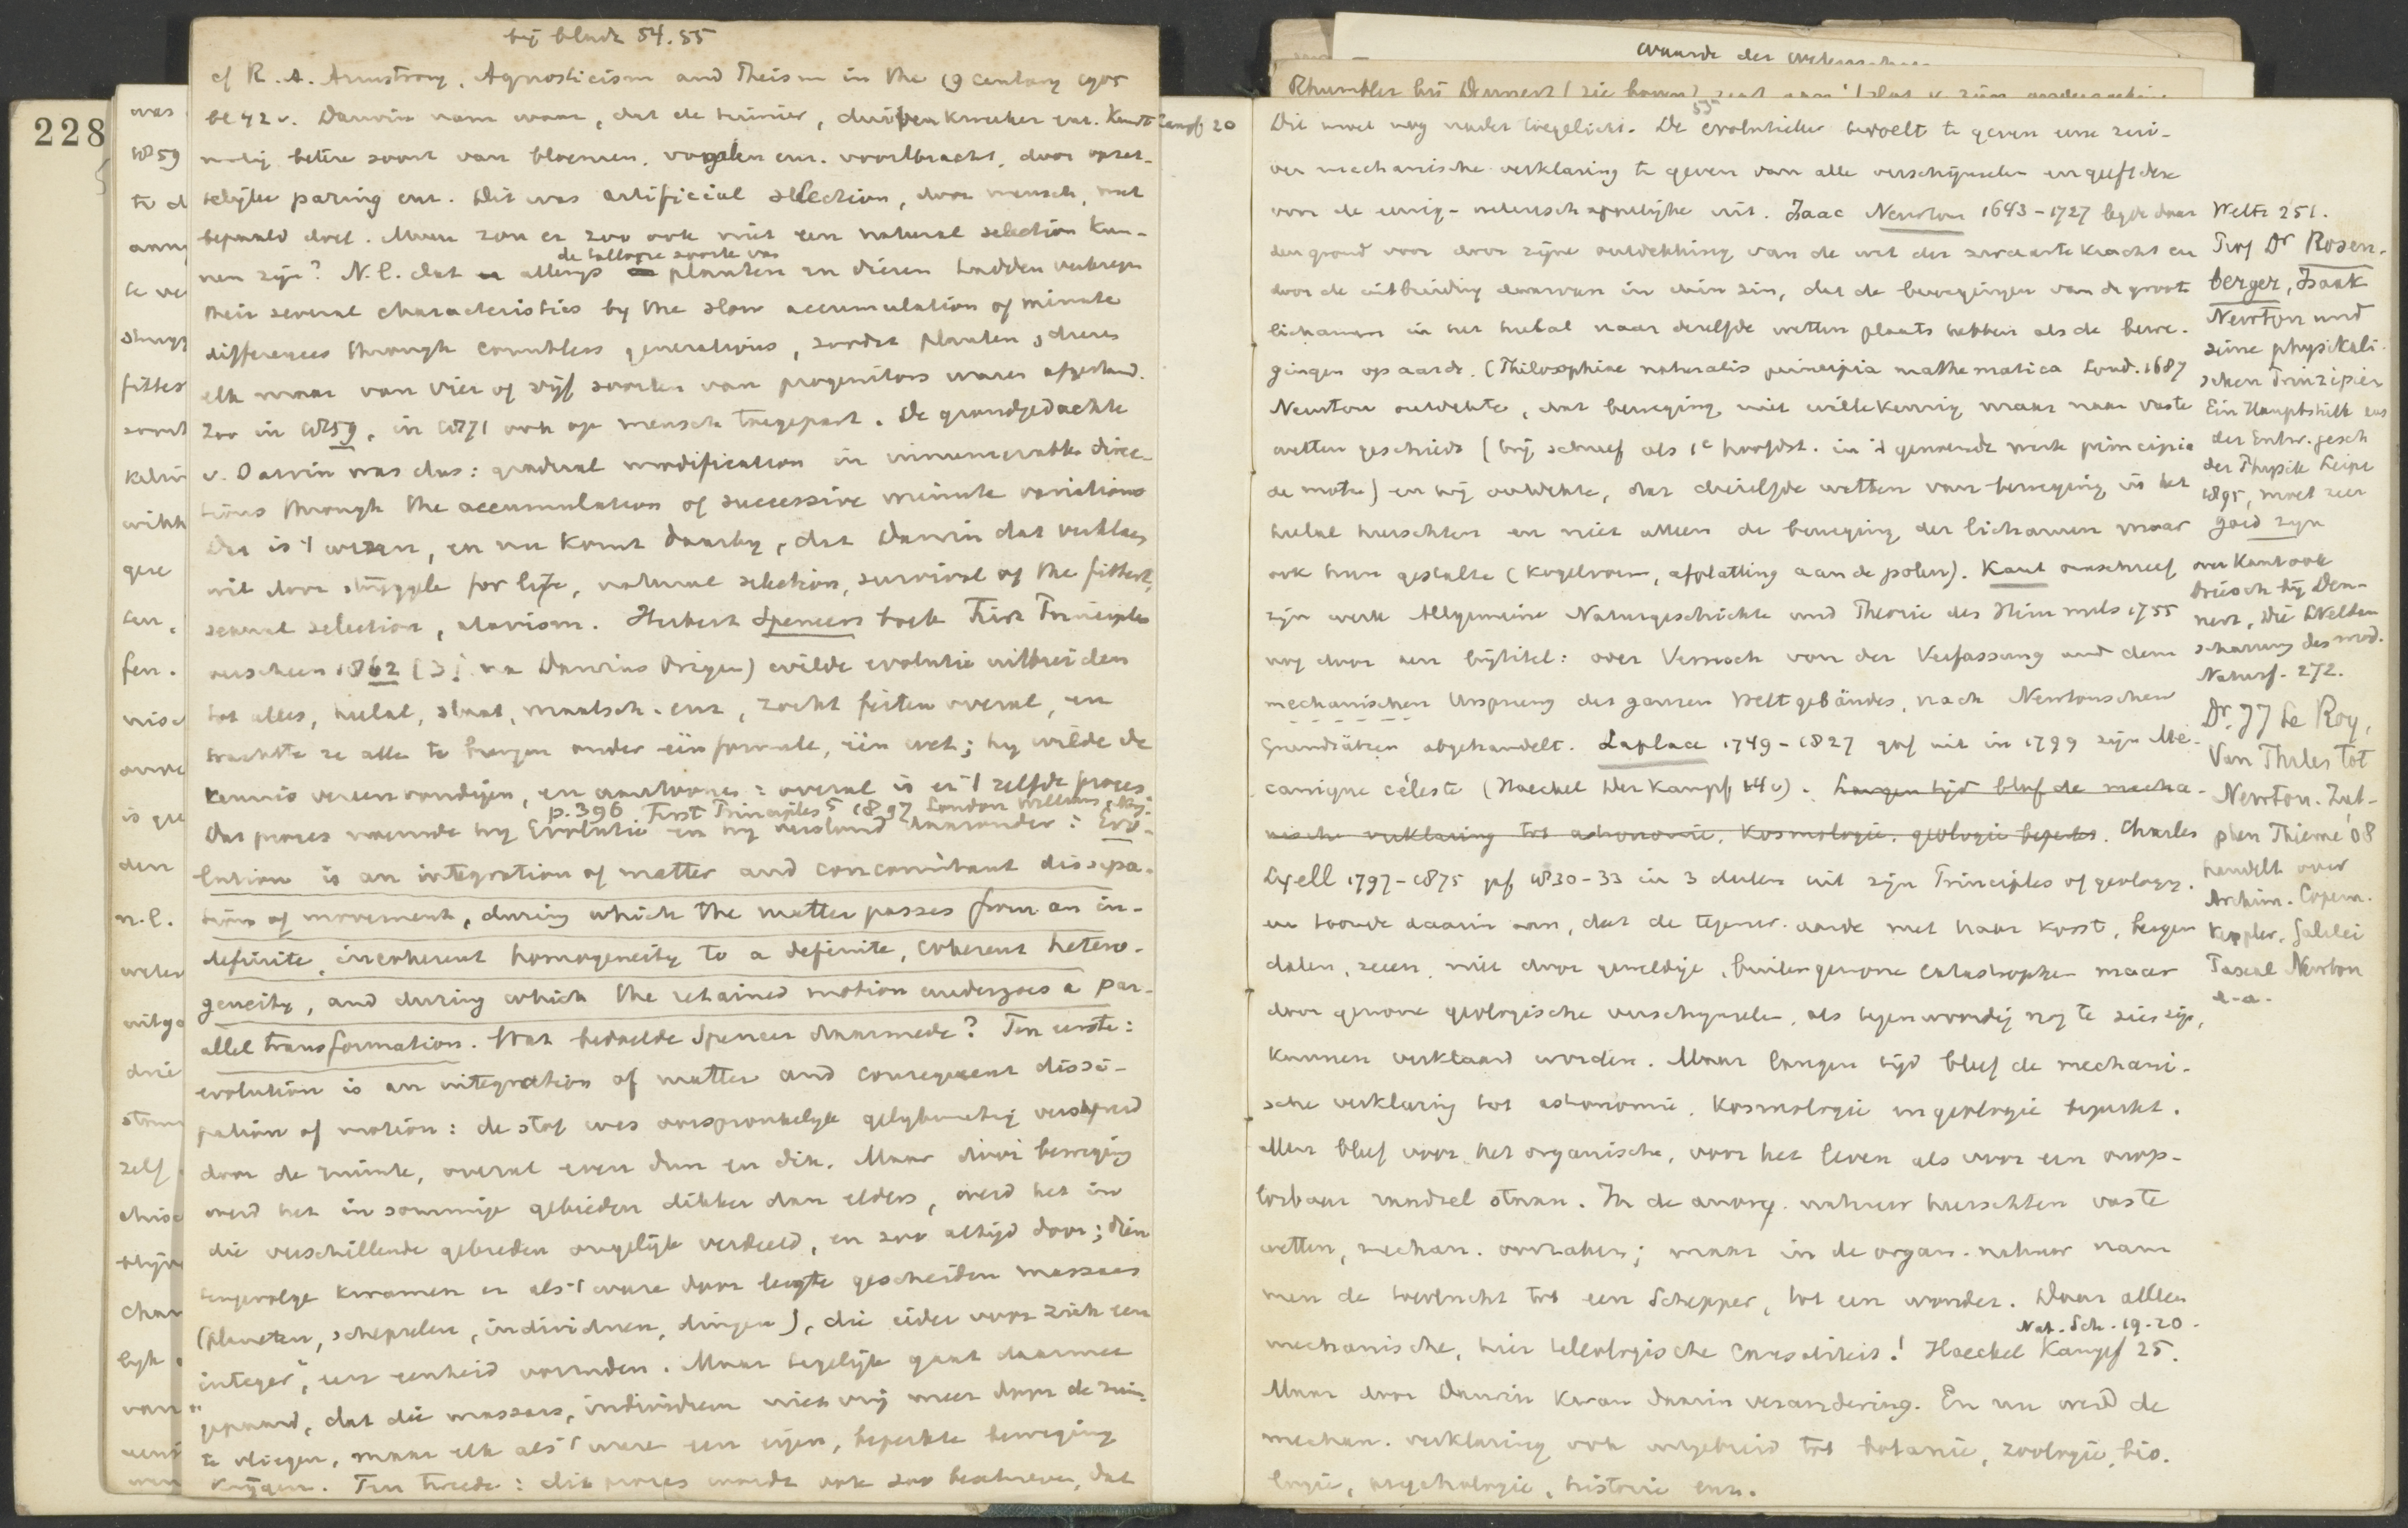 bij bladz 54.55
cf R. A. Armstrong, Agnosticism and Theism in the 19 century 1905
bl 42 v. Darwin nam waar, dat de tuinier, duivenkweeker enz.
matig betere soort van bloemen, vogelen enz. voortbracht, door opzet-
telijke paring enz. Dit was artificial selection, door mensch, met
bepaald doel. Maar zou er zoo ook niet een natural selection kun-
de talloze soorten van
nen zijn? N.l. dat allengs planten en dieren hadden verkregen
their several characteristics by the slow accumulation of minute
differences through countless generations, zoodat planten, dieren
elk maar van vier of vijf soorten van progenitors waren afgestamd.
Zoo in 1859, in 1871 ook op mensch toegepast. De grondgedachte
v. Darwin was dus: gradual modification in innumerable direc-
tions through the accumulation of successive minute variations
Dat is 't wezen, en nu komt daarbij, dat Darwin dat verklaren
wil door struggle for life, natural selection, survival of the fittest,
sexual selection, atavism. Herbert Spencers boek First Principles
verscheen 1862 (3 j. na Darwins Origin) wilde evolutie uitbreiden
tot alles, heelal, staat, maatsch. enz, zocht feiten overal, en
trachtte ze alle te brengen onder één formule, één wet; hij wilde de
kennis vereenvoudigen, en aantoonen: overal is er 't zelfde proces.
p. 396 First Principles 5 1897 London Williams
Dat proces noemde hij Evolutie en hij verstond daaronder: Evo-
lution is an integration of matter and concomitant dissipa-
tion of movement, during which the matter passes from an in-
definite, incoherent homogeneity to a definite, coherent hetero-
geneity, and during which the retained motion undergoes a par-
allel transformation. Wat bedoelde Spencer daarmede? Ten eerste:
evolution is an integration of matter and consequent dissi-
pation of motion: de stof was oorspronkelijk gelijkmatig verspreid
door de ruimte, overal even dun en dik. Maar door beweging
werd het in sommige gebieden dikker dan elders, werd het in
die verschillende gebieden ongelijk verdeeld, en zoo altijd door; dien
tengevolge kwamen er als 't ware door leegte gescheiden massaas
(planeten, schepselen, individuen, dingen), die ieder voor zich een
integer, een eenheid vormden. Maar tegelijk gaat daarmee
gepaard, dat die massaas, individuen niet vrij meer door de ruim-
te vliegen, maar elk als 't ware een eigen, beperkte beweging
krijgen. Ten tweede: dit proces wordt ook zoo beschreven, dat
228
was
1859
te d
te ve
fittes
gere
fen.
den
n.l.
drie
zelf
lijk
van
waarde der
Kampf 20
Dit moet nog nader toegelicht. De evolutieleer bedoelt te geven eene zui-
ver mechanische verklaring te geven van alle verschijnselen en geeft deze
voor de eenig-wetenschappelijke uit. Isaac Newton 1643-1727 legde daar
den grond voor door zijne ontdekking van de wet der zwaartekracht en
door de uitbreiding daarvan in dien zin, dat de bewegingen van de groote
lichamen in het heelal naar dezelfde wetten plaats hebben als de bewe-
gingen op aarde. (Philosophiae naturalis principia mathematica Lond. 1687
Newton ontdekte, dat beweging niet willekeurig maar naar vaste
wetten geschiedt (hij schreef als 1e hoofdst. in 't genoemde werk principia
de motu) en hij ontdekte, dat diezelfde wetten van beweging in het
heelal heerschten en niet alleen de beweging der lichamen maar
ook hun gestalte (kogelvorm, afplatting aan de polen). Kant omschreef
zijn werk Allgemeine Naturgeschichte und Theorie des Himmels 1755
nog door een bijtitel: oder Versuch von der Verfassung und dem
mechanischen Ursprung des ganzen Weltgebäudes, nach Newtonschen
Grundsätzen abgehandelt. Laplace 1749-1827 gaf uit in 1799 zijn Mé-
canique céleste (Haeckel Der Kampf 14 v). Langen tijd bleef de mecha-
nische verklaring tot astronomie, kosmologie, geologie beperkt. Charles
Lyell 1797-1875 gaf 1830-33 in 3 deelen uit zijn Principles of geology.
en toonde daarin aan, dat de tegenw. aarde met haar korst, bergen
dalen, zeeen, niet door geweldige, buitengewone catastrophen maar
door gewone geologische verschijnselen, als tegenwoordig nog te zien zijn,
kunnen verklaard worden. Maar langen tijd bleef de mechani-
sche verklaring tot astronomie, kosmologie en geologie beperkt.
Men bleef voor het organische, voor het leven als voor een onop-
losbaar raadsel staan. In de anorg. natuur heerschten vaste
wetten, mechan. oorzaken; maar in de organ. natuur nam
men de toevlucht tot een Schepper, tot een wonder. Daar alleen
Nat. Sch. 19-20.
mechanische, hier teleologische causaliteit! Haeckel Kampf 25.
Maar door Darwin kwam daarin verandering. En nu werd de
mechan. verklaring ook uitgebreid tot botanie, zoologie, bio-
logie, psychologie, historie enz.
Weltr 251.
Prof Dr Rosen-
berger, Isaak
Newton und
seine physikali-
schen Prinzipien
Ein Hauptstück aus
der Entw. gesch
der Physik Leipz
1895, moet zeer
goed zijn
over Kant ook
Driesch bij Den-
nert, Die Weltan-
schauung des mod.
Naturf. 272.
Dr. J J le Roy,
Van Thales tot
Newton. Zut-
phen Thieme '08
handelt over
Archim. Copern.
Keppler, Galilei
Pascal Newton
e.a.